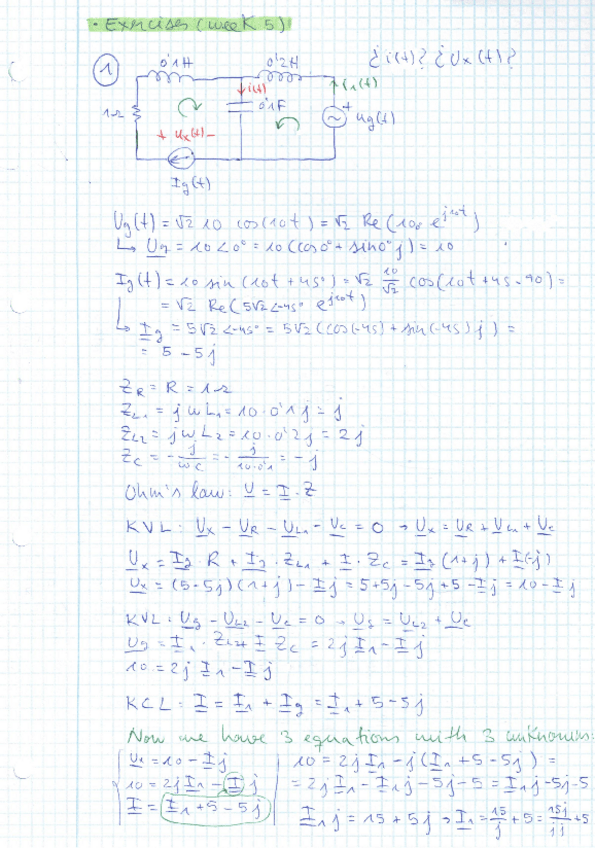 • Exercises (week 5)
1
0'1H
0'2H
¿i(t)? ¿Ux(t)?
1Ω
i(t)
0'1F
i₁(t)
+ Ux(t) -
+ Ug(t)
Ig(t)
Ug(t) = √2 10 cos(10t) = √2 Re(10₀ e^j10t)
↳ Ug = 10∠0° = 10 (cos0° + sin0° j) = 10
Ig(t) = 10 sin (10t + 45°) = √2 10/√2 cos(10t + 45 - 90) =
= √2 Re(5√2∠-45° e^j10t)
↳ Ig = 5√2∠-45° = 5√2 (cos(-45) + sin(-45) j) =
= 5 - 5j
Z_R = R = 1Ω
Z_L1 = jωL₁ = 10·0'1j = j
Z_L2 = jωL₂ = 10·0'2j = 2j
Z_C = - j/ωC = - j/10·0'1 = -j
Ohm's law: U = I · Z
KVL: Ux - U_R - U_L1 - Uc = 0 → Ux = U_R + U_L1 + Uc
Ux = Ig · R + Ig · Z_L1 + I · Z_C = Ig (1+j) + I(-j)
Ux = (5-5j)(1+j) - Ij = 5+5j-5j+5 - Ij = 10 - Ij
KVL: Ug - U_L2 - Uc = 0 → Ug = U_L2 + Uc
Ug = I₁ · Z_L2 + I Z_C = 2j I₁ - Ij
10 = 2j I₁ - Ij
KCL: I = I₁ + Ig = I₁ + 5 - 5j
Now we have 3 equations with 3 unknown:
U₁ = 10 - Ij
10 = 2j I₁ - I j
I = I₁ + 5 - 5j
10 = 2j I₁ - j(I₁ + 5 - 5j) =
= 2j I₁ - I₁j - 5j - 5 = I₁j - 5j - 5
I₁j = 15 + 5j → I₁ = 15/j + 5 = 15j/jj + 5